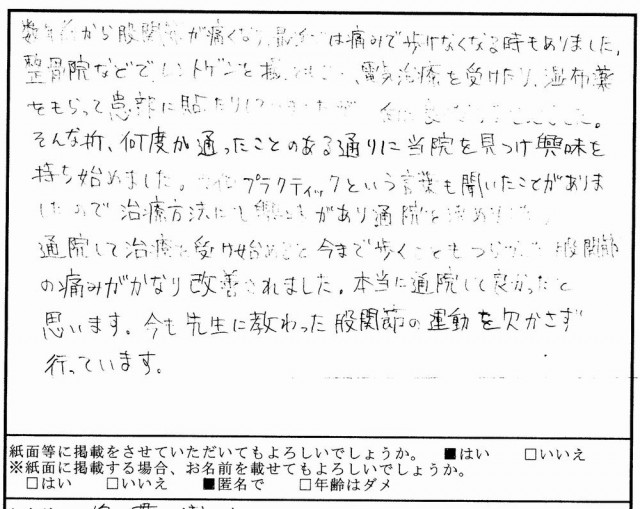 数年前から股関節が痛くなり、最近では痛みで歩けなくなる時もありました。
整骨院などでレントゲンを撮 電気治療を受けたり、湿布薬
をもらって患部に貼ったりして
そんな折、何度か通ったことのある通りに当院を見つけ興味を
持ち始めました。カイロプラクティックという言葉も聞いたことがありま
したので治療方法にも興味があり通院を決めました。
通院して治療を受け始めると今まで歩くこともつらかった股関節
の痛みがかなり改善されました。本当に通院して良かったと
思います。今も先生に教わった股関節の運動を欠かさず
行っています。
紙面等に掲載をさせていただいてもよろしいでしょうか。 ■はい □いいえ
※紙面に掲載する場合、お名前を載せてもよろしいでしょうか。
□はい □いいえ ■匿名で □年齢はダメ